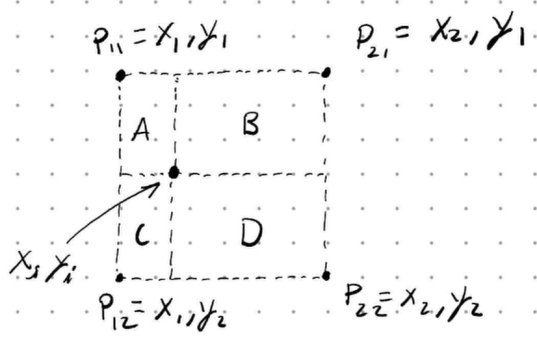 P₁₁ = x₁, y₁
P₂₁ = x₂, y₁
A
B
C
D
xᵢ yᵢ
P₁₂ = x₁, y₂
P₂₂ = x₂, y₂